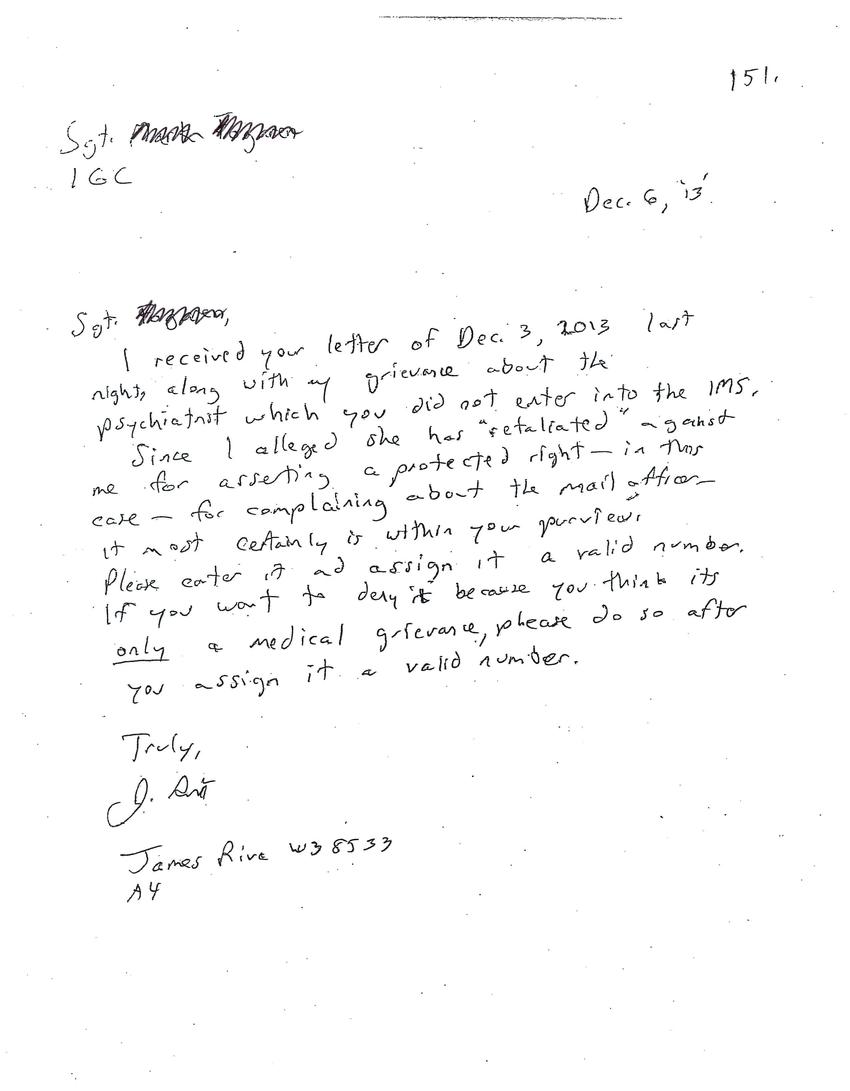 151.
Sgt.
IGC
Dec. 6, '13'
Sgt.
I received your letter of Dec. 3, 2013 last
night, along with my grievance about the
psychiatrist which you did not enter into the IMS.
Since I alleged she has "retaliated" against
me for asserting a protected right — in this
case — for complaining about the mail officer —
it most certainly is within your purview.
Please enter it ad assign it a valid number.
If you want to deny it because you think its
only a medical grievance, please do so after
you assign it a valid number.
Truly,
J.
James Riva W38533
A4